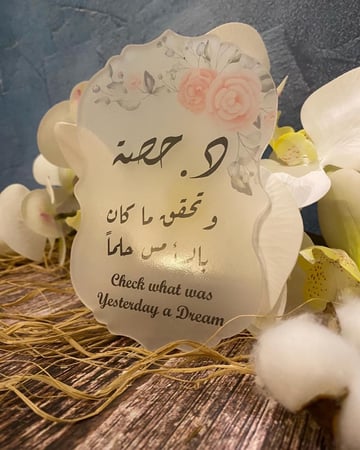 د. حصة
وتحقق ما كان
بالأمس حلماً
Check what was
Yesterday a Dream